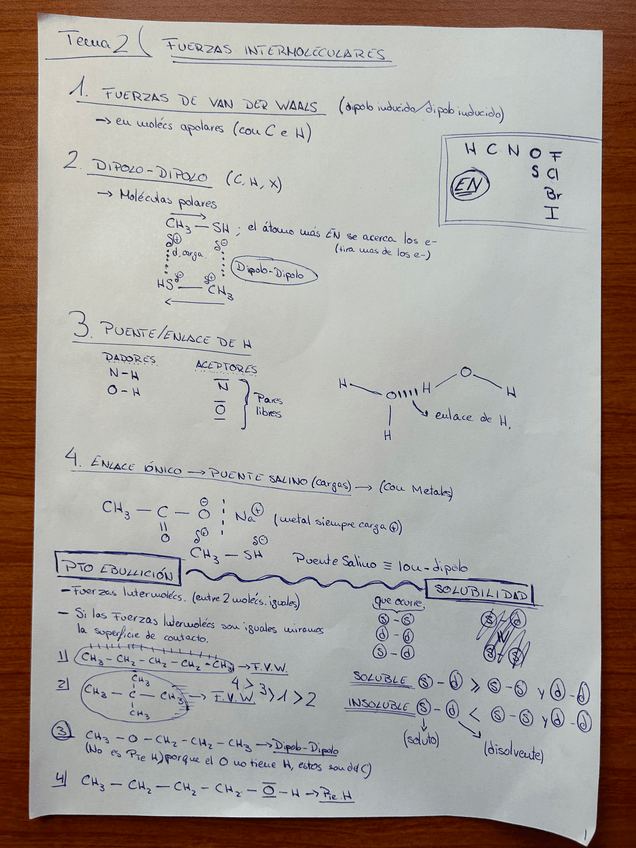 Tema 2 ( FUERZAS INTERMOLECULARES
1. FUERZAS DE VAN DER WAALS (dipolo inducido/dipolo inducido)
→ en moléculas apolares (con C e H)
H C N O F
S Cl
EN
Br
I
2. DIPOLO-DIPOLO (C, H, X)
→ Moléculas polares
CH3 — SH ; el átomo más EN se acerca los e-
(tira mas de los e-)
δ⊕ δ⊖
d. carga
Dipolo-Dipolo
δ⊖ δ⊕
HS — CH3
3. PUENTE/ENLACE DE H
DADORES ACEPTORES
N-H N
O-H O
Pares libres
H O H O H
H
enlace de H.
4. ENLACE IÓNICO → PUENTE SALINO (cargas) → (Con Metales)
CH3 — C — O⊖ Na⊕ (metal siempre carga ⊕)
O
δ⊕ δ⊖
CH3 — SH Puente Salino ≡ Ion-dipolo
PTO EBULLICIÓN
SOLUBILIDAD
- Fuerzas Intermolécs. (entre 2 molécs. iguales)
- Si las Fuerzas Intermolécs son iguales miramos
la superficie de contacto.
1) CH3 - CH2 - CH2 - CH2 - CH3 → F.V.W.
4 > 3 > 1 > 2
2) CH3
CH3 - C - CH3 → F.V.W
CH3
③ CH3 - O - CH2 - CH2 - CH3 → Dipolo-Dipolo
(No es Pte H) porque el O no tiene H, estos son del C)
4) CH3 - CH2 - CH2 - CH2 - O - H → Pte H
que ocurre
S - S
d - d
S - S
SOLUBLE S - d ≥ S - S y d - d
INSOLUBLE S - d < S - S y d - d
(soluto) (disolvente)
1